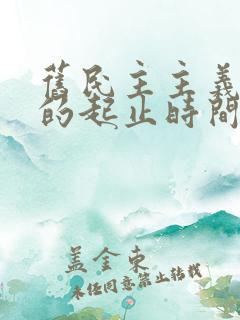 舊民主主義
的起止時間
盖金東
未經同意禁止轉載